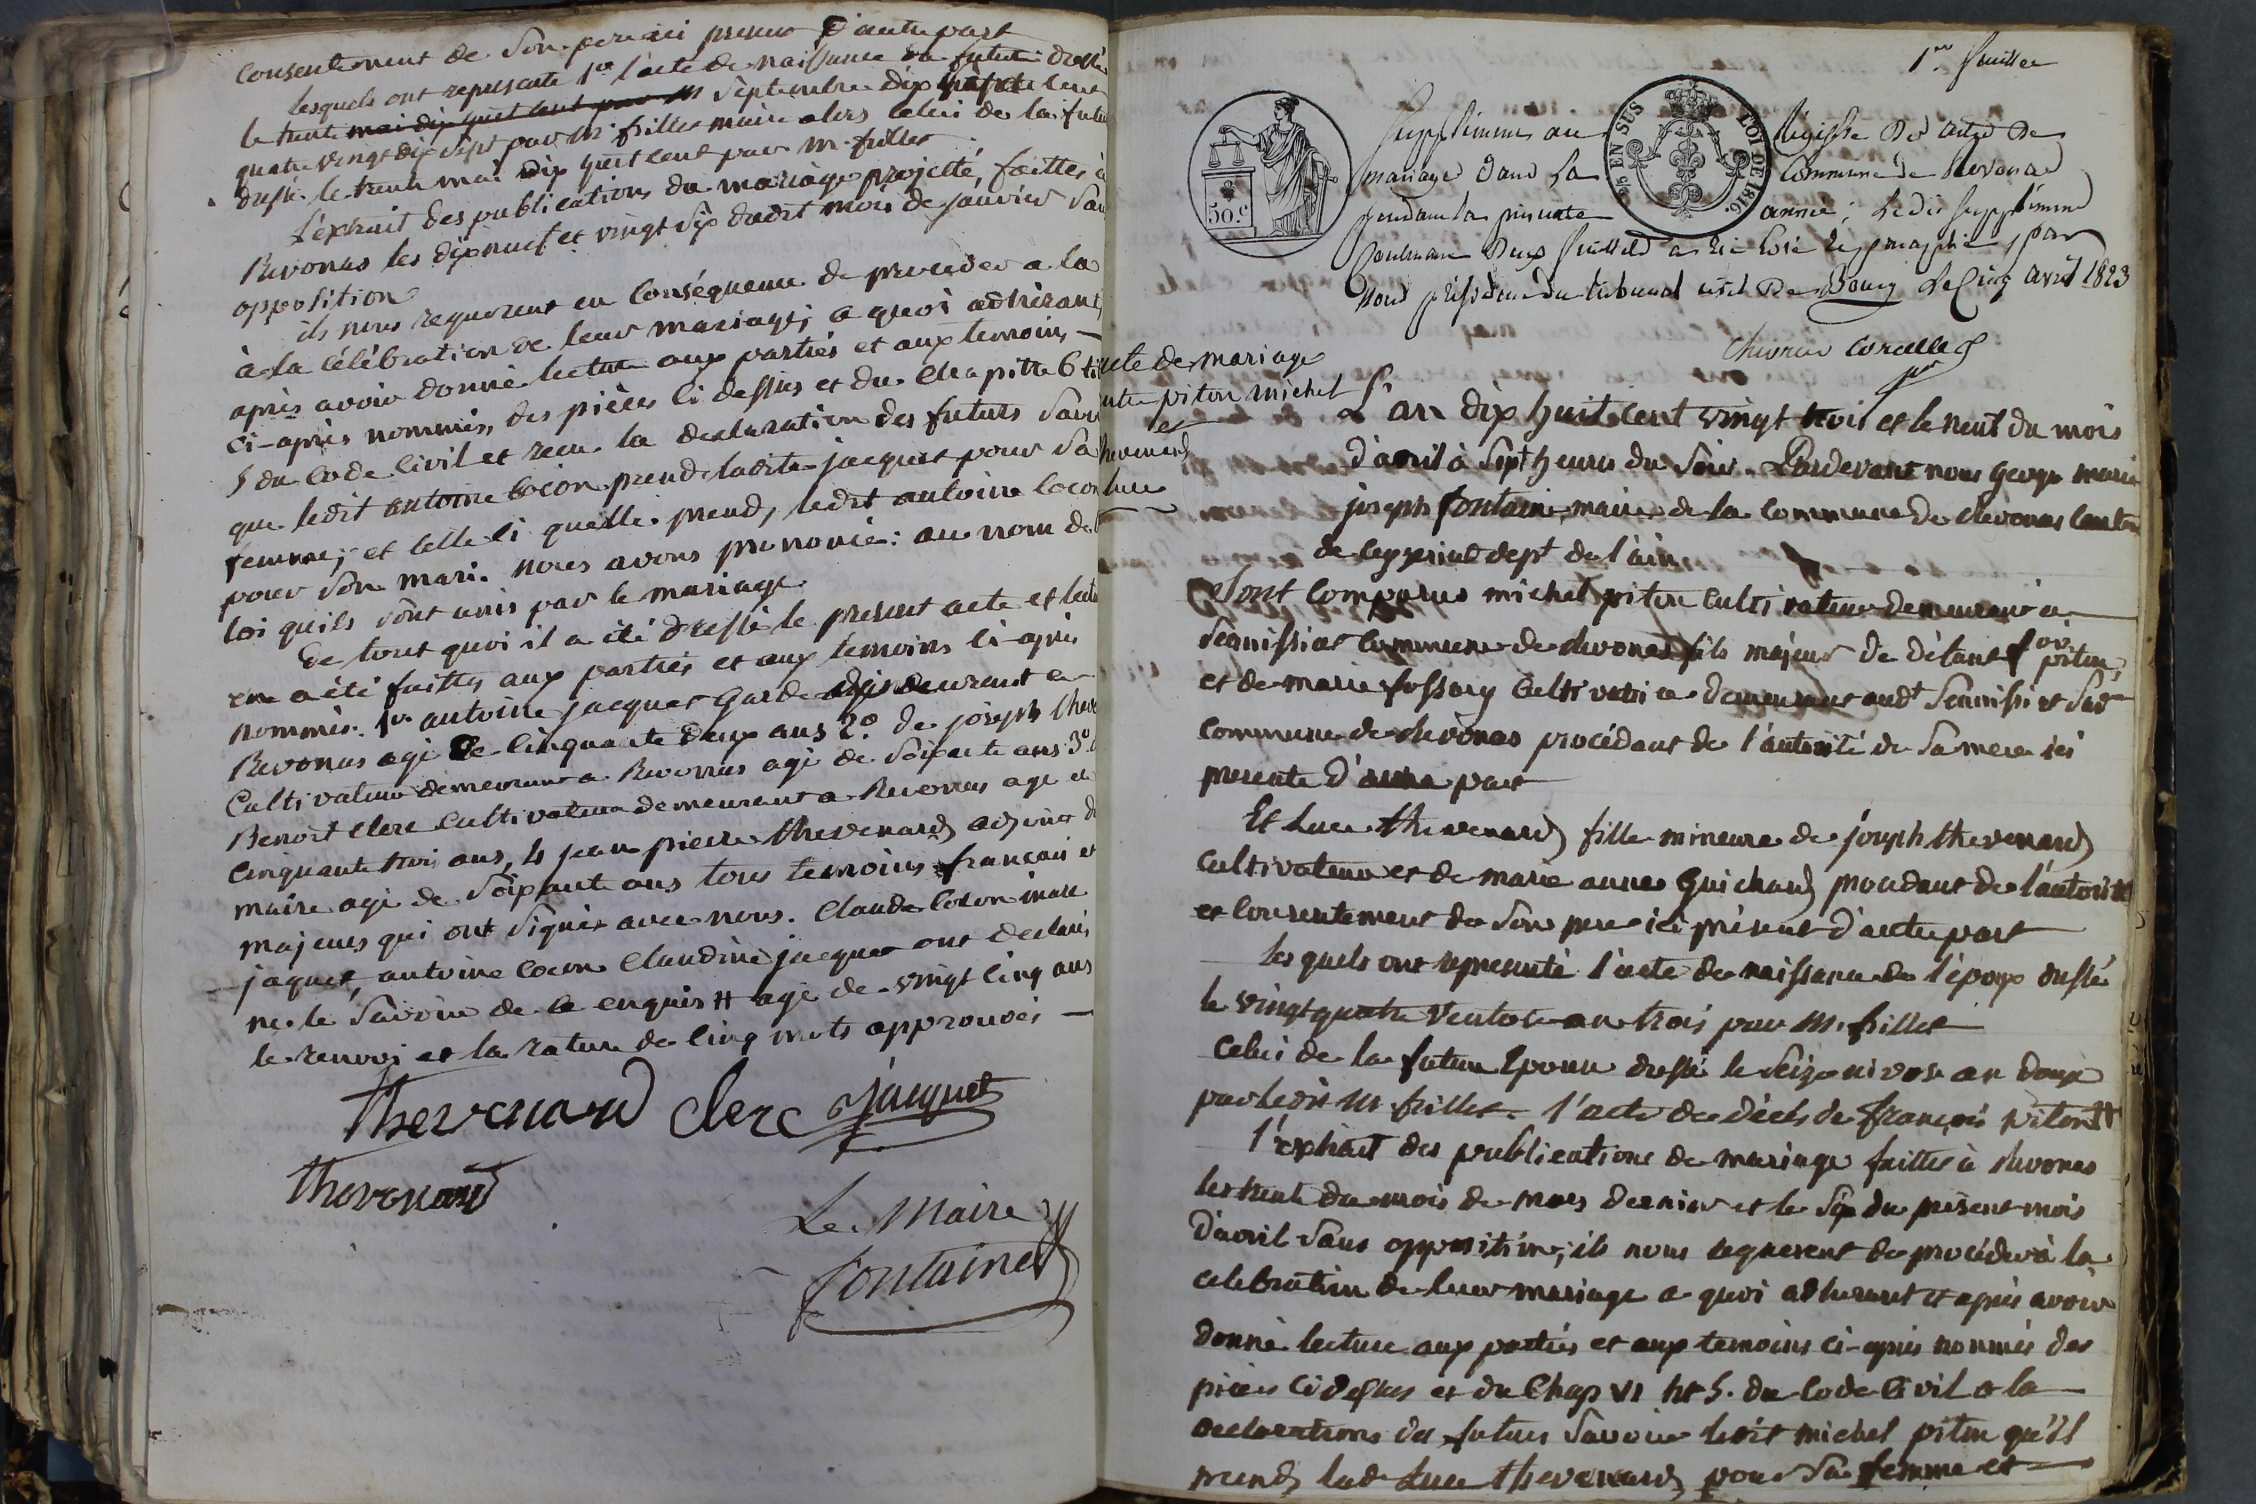 consentement de son pere ici present d'autre part
lesquels ont representé 1º l'acte de naissance du futur dressé
le trente mai dix huit cent par M septembre dix sept cent
quatre vingt dix sept par M. frilles maire alors celui de la future
dressé le trente mai dix huit cent par M. frilles
l'extrait des publications du mariage projetté, faittes à
Revonas les dixneuf et vingt six dudit mois de janvier sans
opposition
ils nous requerent en conséquence de proceder a la
à la célébration de leur mariage; a quoi adhérant,
après avoir donné lecture aux partiés et aux temoins
ci-après nommés, des pièces ci dessus et du chapitre 6 ti
5 du code civil et recu la declaration des futurs savoir
que ledit antoine cocon prend ladite jacquet pour sa
femme; et celle ci quelle prend, ledit antoine cocon
pour son mari. nous avons prononcé: au nom de la
loi quils sont unis par le mariage
De tout quoi il a été dressé le present acte et lecture
en a été faitte, aux partiés et aux temoins ci-après
nommés. 1º antoine jacquet garde demeurant a
Revonas agé de cinquante deux ans 2º de joseph theve
Cultivateur demeurant a Revonas agé de soixante ans 3º
Benoit Clerc Cultivateur demeurant a Revonas agé de
cinquante trois ans, 4 jean pierre thevenard adjoint du
maire agé de soixante ans tous temoins français et
majeurs qui ont signés avec nous. Claude Cocon marc
jaquet, antoine cocon Claudine jacquet ont declaré
ne le savoir de ce enquis # agé de vingt cinq ans
le renvoi et la rature de cinq mots approuvés
Thevenard Clerc jacquet
Thevenard
Le Maire
fontaine
1er feuillet
50 c.
96 EN SUS
LOI DE 1816.
Supplément au Régistre des actes de
mariage dans la Commune de Revonas
pendant la presente année; Ledit supplément
Contenant deux feuillets a été coté et paraphé par
Nous président du tribunal civil de Bourg Le Cinq avril 1823
acte de mariage
entre piton michel
et
thevenard
luce
L'an dix huit cent vingt trois et le neuf du mois
d'avril à sept heures du soir. Pardevant nous George marie
joseph fontaine, maire de la commune de Revonas canton
de Ceyzeriat dept de l'ain
Sont comparus michel piton cultivateur demeurant a
Senissiat commune de Revonas fils majeur de défunt fois piton
et de marie fossary cultivatrice demeurant audt Senissiat sude
commune de Revonas procédant de l'autorité de sa mere ici
presente d'une part
Et Luce thevenard fille mineure de joseph thevenard
cultivateur et de marie anne Guichard procedant de l'autorité
et consentement de son pere ici présent d'autre part
les quels ont representé l'acte de naissance de l'époux dressé
le vingt quatre ventose an trois par M. frilles
celui de la future épouse dressé le seize nivose an douze
par ledit M. frilles. l'acte de décès de françois piton #
l'extrait des publications de mariage faittes à Revonas
les trente du mois de mars dernier et le six du présent mois
d'avril sans opposition; ils nous requerent de procéder à la
celebration de leur mariage a quoi adherant et après avoir
donné lecture aux partiés et aux temoins ci-après nommés des
pièces ci dessus et du Chap VI tit 5. du code civil a la
declarations des futurs savoir ledit michel piton qu'il
prend lade Luce thevenard pour sa femme et